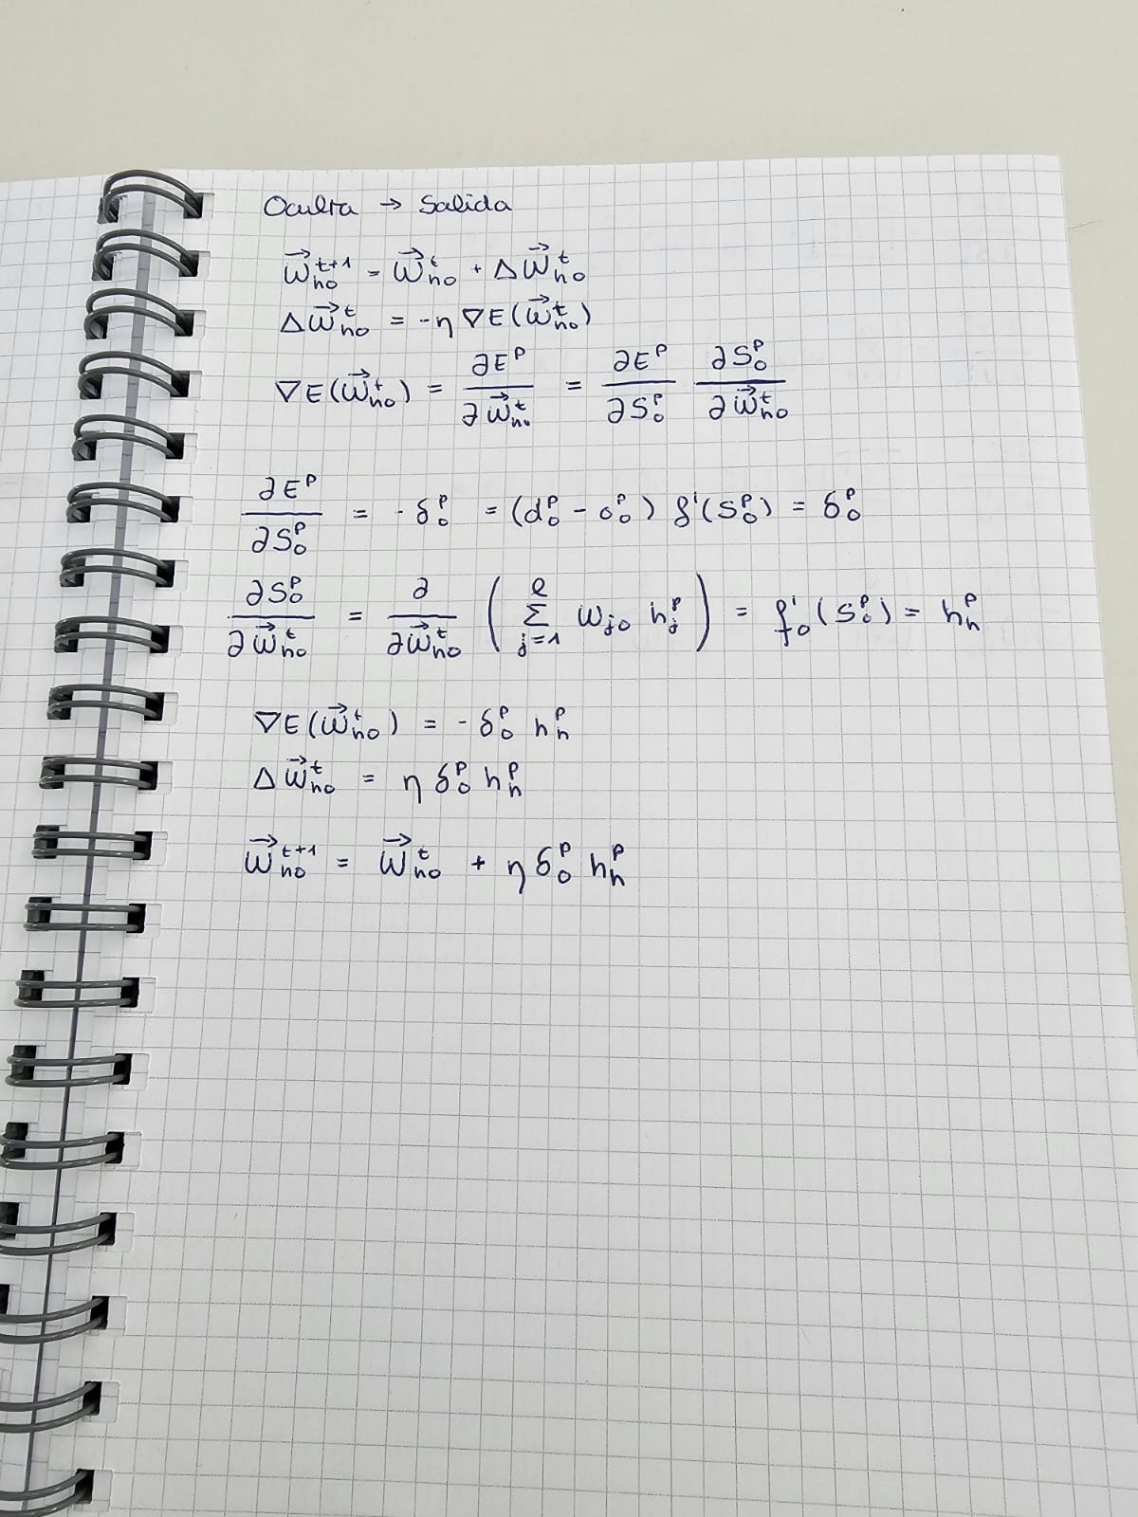 Oculta → Salida
$\vec{w}_{ho}^{t+1} = \vec{w}_{ho}^{t} + \Delta \vec{w}_{ho}^{t}$
$\Delta \vec{w}_{ho}^{t} = -\eta \nabla E(\vec{w}_{ho}^{t})$
$\nabla E(\vec{w}_{ho}^{t}) = \frac{\partial E^p}{\partial \vec{w}_{ho}^{t}} = \frac{\partial E^p}{\partial S_o^p} \frac{\partial S_o^p}{\partial \vec{w}_{ho}^{t}}$
$\frac{\partial E^p}{\partial S_o^p} = -\delta_o^p = (d_o^p - o_o^p) f'(S_o^p) = \delta_o^p$
$\frac{\partial S_o^p}{\partial \vec{w}_{ho}^{t}} = \frac{\partial}{\partial \vec{w}_{ho}^{t}} \left( \sum_{j=1}^{l} w_{jo} h_j^p \right) = f_o'(S_o^p) = h_h^p$
$\nabla E(\vec{w}_{ho}^{t}) = -\delta_o^p h_h^p$
$\Delta \vec{w}_{ho}^{t} = \eta \delta_o^p h_h^p$
$\vec{w}_{ho}^{t+1} = \vec{w}_{ho}^{t} + \eta \delta_o^p h_h^p$